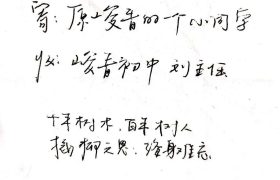 寄：原峻青的一个小同学
收：峻青初中 刘主任
十年树木，百年树人
授卿之恩，终身难忘